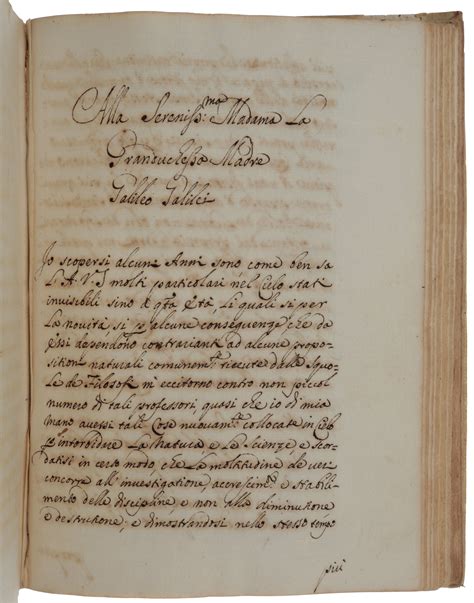 Alla Sereniss:ma Madama La
Granduchessa Madre
Galileo Galilei
Io scopersi alcuni Anni sono, come ben sa
L'A.V.S. molti particolari nel Cielo stati
invisibili sino a qta età, li quali sì per
la novità, sì p alcune conseguenze, che da
essi dependono contrariant ad alcune propo-
sitioni naturali comunemte ricevute dalle Squole
de Filosofi mi eccitorno contro non piccol
numero di tali professori, quasi che io di mia
mano avessi tali Cose nuovamte collocate in Cielo
p intorbidare La Natura e Le Scienze, e scor-
datisi in certo modo, che La moltitudine de veri
concorre all'investigatione, accrescimto e stabili-
mento delle discipline, e non alla diminutione
e destrutione, e dimostrandosi nello stesso tempo
più